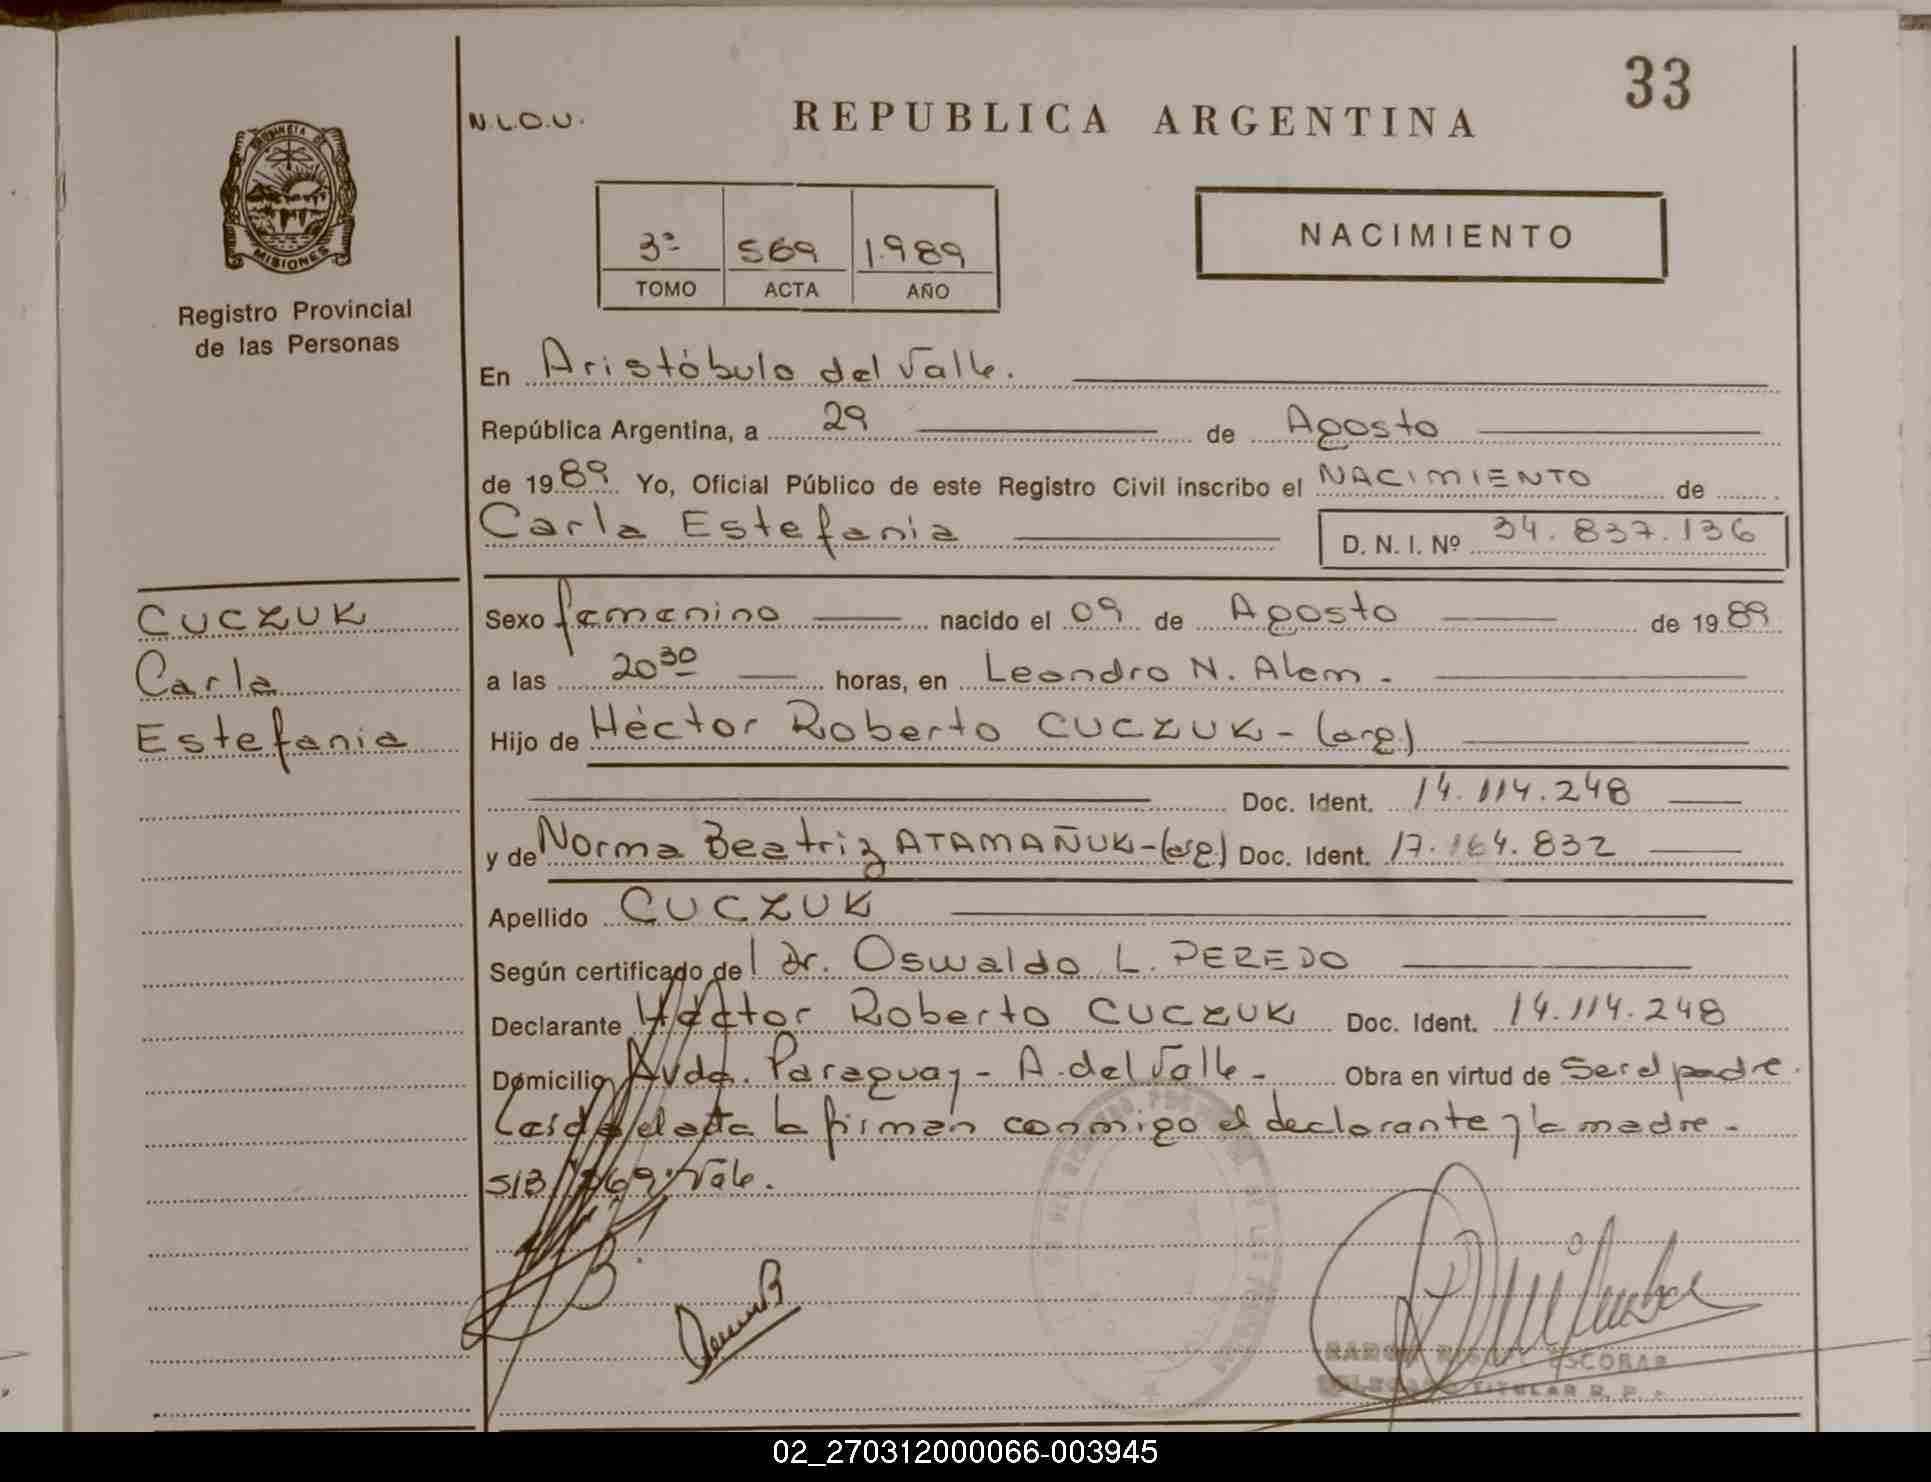 33
N.L.O.U.
REPUBLICA ARGENTINA
PROVINCIA DE
MISIONES
Registro Provincial
de las Personas
3º 569 1.989
TOMO ACTA AÑO
NACIMIENTO
En Aristóbulo del Valle.
República Argentina, a 29 de Agosto
de 1989 Yo, Oficial Público de este Registro Civil inscribo el NACIMIENTO de
Carla Estefania D. N. I. Nº 34.837.136
CUCZUK
Carla
Estefania
Sexo femenino nacido el 09 de Agosto de 1989
a las 20 30 horas, en Leandro N. Alem.
Hijo de Héctor Roberto CUCZUK - (arg.)
Doc. Ident. 14.114.248
y de Norma Beatriz ATAMAÑUK - (arg.) Doc. Ident. 17.164.832
Apellido CUCZUK
Según certificado de l Dr. Oswaldo L. PEREDO
Declarante Héctor Roberto CUCZUK Doc. Ident. 14.114.248
Domicilio Avda. Paraguay - A. del Valle - Obra en virtud de Ser el padre.
Leída el acta la firman conmigo el declarante y la madre -
S/B 569: Vale.
ESCOBAR
TITULAR R. P.
02_270312000066-003945